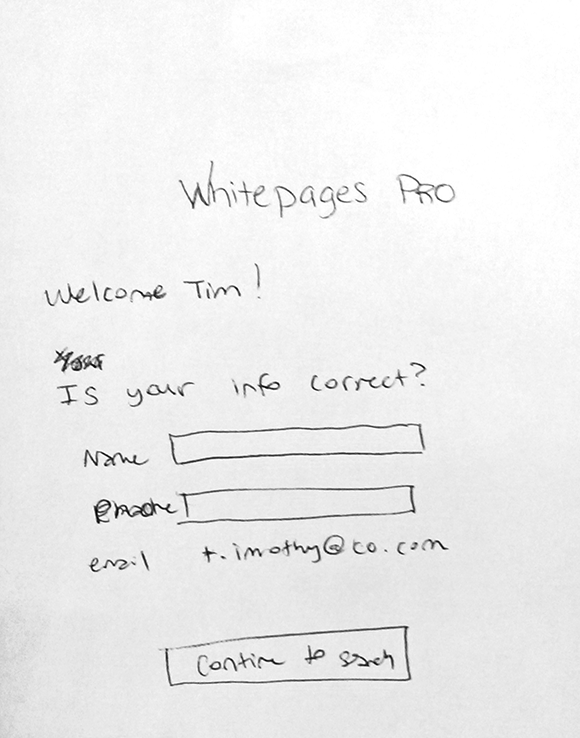 Whitepages PRO
Welcome Tim!
Is your info correct?
Name
email t.imothy@co.com
Continue to search